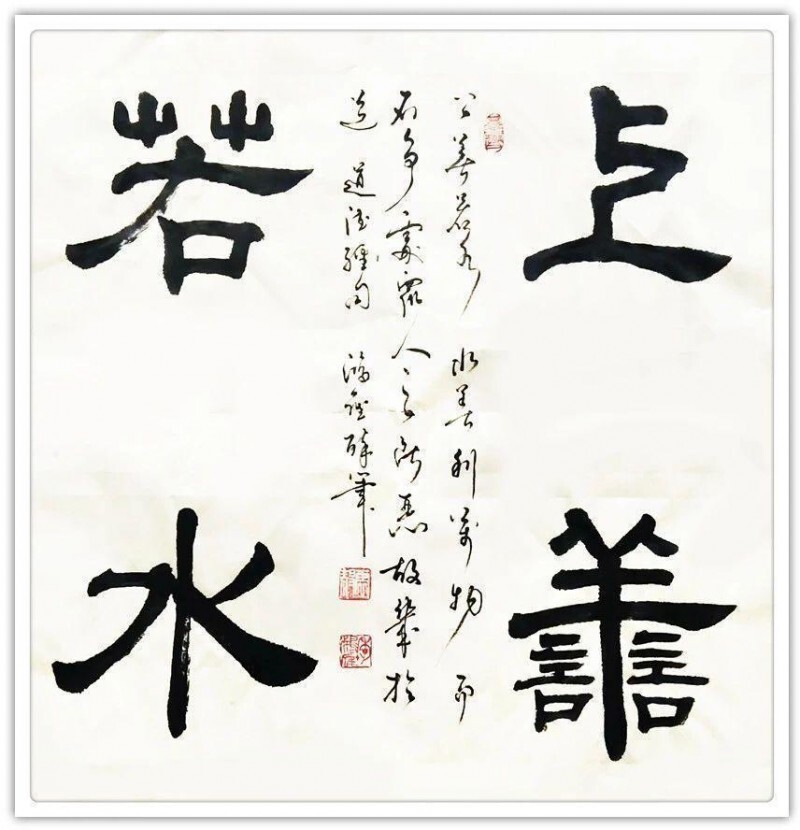 上譱
上善若水 水善利萬物而
不爭處眾人之所惡故幾於
道 道德經句 醉筆
若水